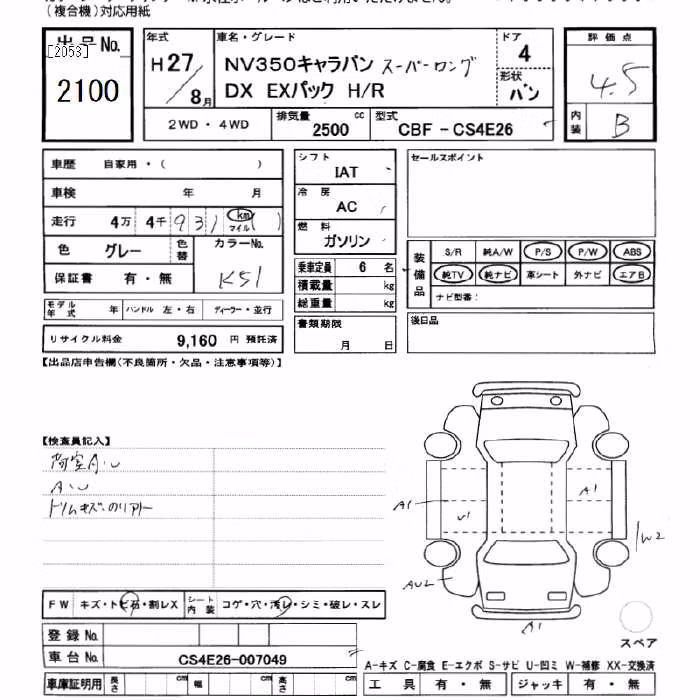 (複合機)対応用紙
出品No.
[2053]
2100
年式
H27/8月
車名・グレード
NV350キャラバン スーパーロング
DX EXパック H/R
ドア
4
形状
バン
評価点
4.5
内装
B
2WD・4WD
排気量
2500 cc
型式
CBF-CS4E26
車歴 自家用・( )
車検 年 月
走行 4万 4千931 km マイル ( )
色 グレー 色替 カラーNo. K51
保証書 有・無
モデル年式 年 ハンドル 左・右 ディーラー・並行
リサイクル料金 9,160 円 預託済
シフト
IAT
冷房
AC
燃料
ガソリン
乗車定員 6 名
積載量 kg
総重量 kg
書類期限
月 日
セールスポイント
装備品
S/R 純A/W P/S P/W ABS
純TV 純ナビ 革シート 外ナビ エアB
ナビ型番:
後日品
【出品店申告欄(不良箇所・欠品・注意事項等)】
【検査員記入】
荷室A.U
A.U
トリムキズ.のリアリー
A1
U1
A1
W2
AU2
A1
FW キズ・トビ石・割レX シート内装 コゲ・穴・汚レ・シミ・破レ・スレ
登録No.
車台No. CS4E26-007049
車庫証明用 長さ cm 幅 cm 高さ cm
スペア
A-キズ C-腐食 E-エクボ S-サビ U-凹ミ W-補修 XX-交換済
工具 有・無 ジャッキ 有・無